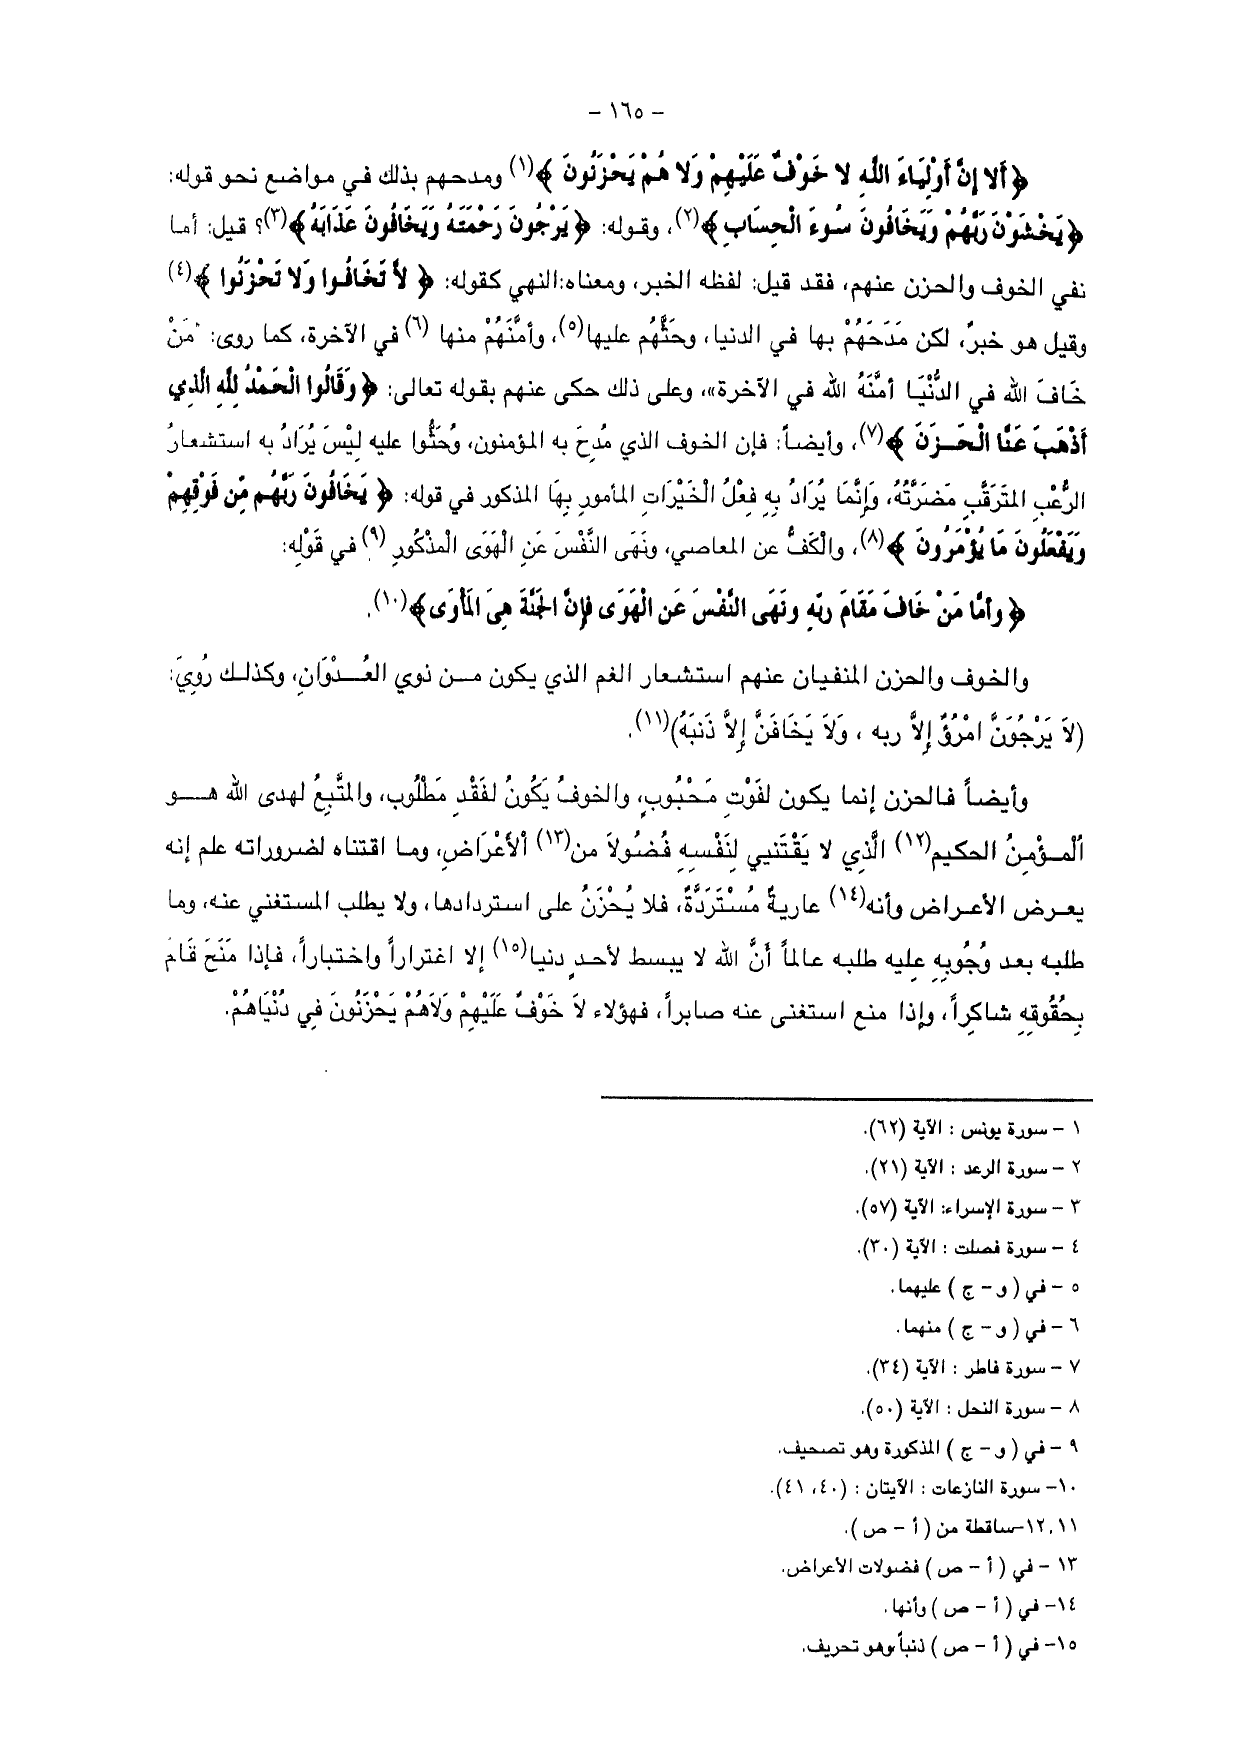 – ١٦٥ –
﴿ أَلا إِنَّ أَوْلِيَاءَ اللَّهِ لا خَوْفٌ عَلَيْهِمْ وَلا هُمْ يَحْزَنُونَ ﴾(١) ومدحهم بذلك في مواضع نحو قوله:
﴿ يَخْشَوْنَ رَبَّهُمْ وَيَخَافُونَ سُوءَ الْحِسَابِ ﴾(٢)، وقوله: ﴿ يَرْجُونَ رَحْمَتَهُ وَيَخَافُونَ عَذَابَهُ ﴾(٣)؟ قيل: أما
نفي الخوف والحزن عنهم، فقد قيل: لفظه الخبر، ومعناه:النهي كقوله: ﴿ لاَ تَخَافُوا وَلا تَحْزَنُوا ﴾(٤)
وقيل هو خبرٌ، لكن مَدَحَهُمْ بها في الدنيا، وحثَّهُم عليها(٥)، وأمَّنَهُمْ منها (٦) في الآخرة، كما روى: "مَنْ
خَافَ الله في الدُّنْيَا أمَّنَهُ الله في الآخرة»، وعلى ذلك حكى عنهم بقوله تعالى: ﴿ وَقَالُوا الْحَمْدُ لِلَّهِ الَّذِي
أَذْهَبَ عَنَّا الْحَـزَنَ ﴾(٧)، وأيضاً: فإن الخوف الذي مُدحَ به المؤمنون، وحُثُّوا عليه ليْسَ يُرَادُ به استشعارُ
الرُّعْبِ المتَرقَّبِ مَضرَّتُهُ، وَإنَّمَا يُرَادُ بِهِ فِعْلُ الْخَيْرَاتِ المأمورِ بِهَا المذكور في قوله: ﴿ يَخَافُونَ رَبَّهُم مِّن فَوْقِهِمْ
وَيَفْعَلُونَ مَا يُؤْمَرُونَ ﴾(٨)، والْكَفُّ عن المعاصي، ونَهَى النَّفْسَ عَنِ الْهَوَى الْمذْكُورِ (٩) في قَوْلِه:
﴿ وأمَّا مَنْ خَافَ مَقَامَ ربِّه ونَهَى النَّفْسَ عَنِ الْهَوَى فإنَّ الجَنَّةَ هِىَ المَأْوَى ﴾(١٠).
والخوف والحزن المنفيان عنهم استشعار الغم الذي يكون مـن ذوي العُـدْوَانِ، وكذلك رُوِيَ:
(لاَ يَرْجُوَنَّ امْرُؤٌ إلاَّ ربه ، وَلاَ يَخَافَنَّ إلاَّ ذَنبَهُ)(١١).
وأيضاً فالحزن إنما يكون لفَوْتِ مَحْبُوبٍ، والخوفُ يَكُونُ لفَقْدِ مَطْلُوبٍ، والمتَّبِعُ لهدى الله هـو
اُلْمـؤْمِنُ الحكيم(١٢) الَّذِي لا يَقْتَنِيي لِنَفْسِهِ فُضُولاً من(١٣) الْأعْرَاضِ، وما اقتناه لضروراته علم إنه
يعرض الأعراض وأنه(١٤) عاريةٌ مُسْتَرَدَّةٌ، فلا يُحْزَنُ على استردادها، ولا يطلب المستغني عنه، وما
طلبه بعد وُجُوبِهِ عليه طلبه عالماً أنَّ الله لا يبسط لأحدٍ دنيا(١٥) إلا اغتراراً واختباراً، فإذا مَنَحَ قَامَ
بِحُقُوقِهِ شاكراً، وإذا منع استغنى عنه صابراً، فهؤلاء لاَ خَوْفٌ عَلَيْهِمْ وَلاَهُمْ يَحْزَنُونَ فِي دُنْيَاهُمْ.
١ – سورة يونس : الآية (٦٢).
٢ – سورة الرعد : الآية (٢١).
٣ – سورة الإسراء: الآية (٥٧).
٤ – سورة فصلت : الآية (٣٠).
٥ – في ( و – ج ) عليهما.
٦ – في ( و – ج ) منهما.
٧ – سورة فاطر : الآية (٣٤).
٨ – سورة النحل : الآية (٥٠).
٩ – في ( و – ج ) المذكورة وهو تصحيف.
١٠– سورة النازعات : الآيتان : (٤٠، ٤١).
١٢،١١–ساقطة من ( أ – ص ).
١٣ – في ( أ – ص ) فضولات الأعراض.
١٤– في ( أ – ص ) وأنها.
١٥– في ( أ – ص ) ذنباً وهو تحريف.